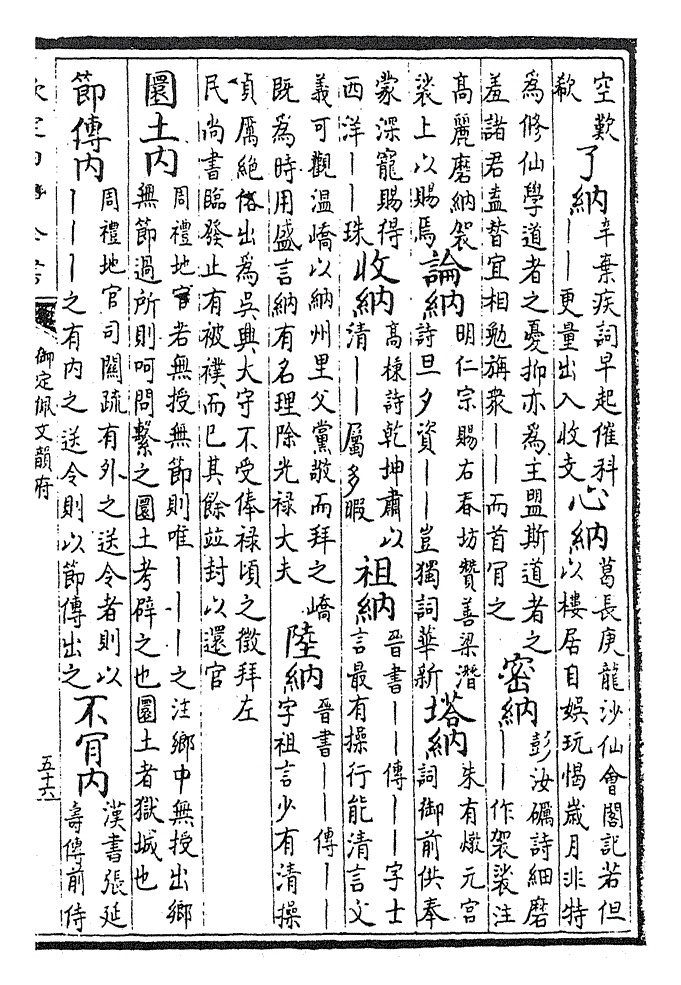 空歎
欷
了納
辛棄疾詞早起催科
——更量出入收支
心納
葛長庚龍沙仙會閣記若但
以樓居自娛玩愒歲月非特
為修仙學道者之憂抑亦為主盟斯道者之
羞諸君盍替宜相勉旃衆——而首肎之
密納
彭汝礪詩細磨
——作袈裟注
高麗磨納袈
裟上以賜焉
論納
明仁宗賜右春坊贊善梁潛
詩旦夕資——豈獨詞華新
塔納
朱有燉元宮
詞御前供奉
蒙深寵賜得
西洋——珠
收納
高棅詩乾坤肅以
清——屬多暇
祖納
晉書——傳——字士
言最有操行能清言父
義可觀溫嶠以納州里父黨敬而拜之嶠
既為時用盛言納有名理除光祿大夫
陸納
晉書——傳——
字祖言少有清操
貞厲絕俗出為吳興大守不受俸祿頃之徵拜左
民尚書臨發止有被襆而已其餘竝封以還官
圜土內
周禮地官若無授無節則唯———之注鄉中無授出鄉
無節過所則呵問繫之圜土考辟之也圜土者獄城也
節傳內
周禮地官司關疏有外之送令者則以
———之有內之送令則以節傳出之
不肎內
漢書張延
壽傳前侍
御定佩文韻府
五十六